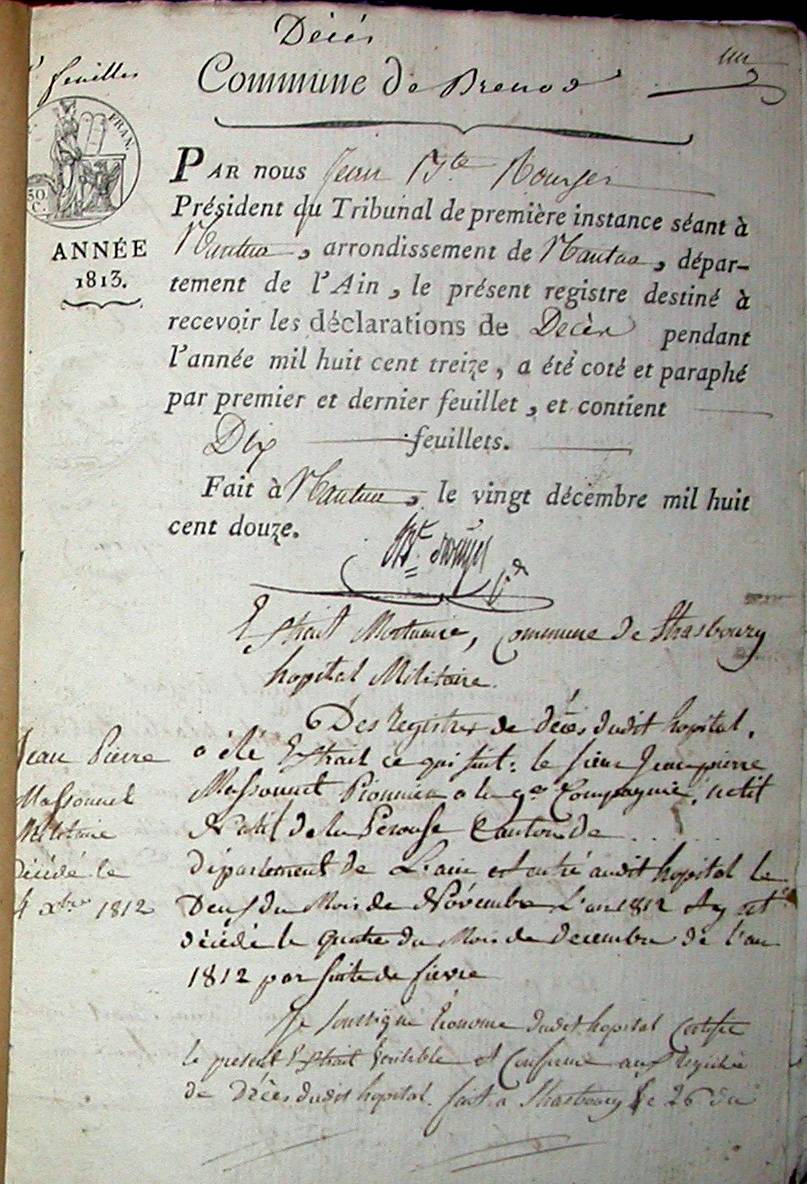 Décés
feuilles
Commune de Brenod
un
FRAN.
50.
C.
ANNÉE
1813.
PAR nous Jean Bte Rouyer
Président du Tribunal de première instance séant à
Nantua, arrondissement de Nantua, dépar-
tement de l'Ain, le présent registre destiné à
recevoir les déclarations de Décès pendant
l'année mil huit cent treize, a été coté et paraphé
par premier et dernier feuillet, et contient
Dix feuillets.
Fait à Nantua, le vingt décembre mil huit
cent douze.
Bte Rouyer
Extrait Mortuaire, Commune de Strasbourg
hopital Militaire.
Des Registres de décès dudit hopital,
a été Extrait ce qui suit: le sieur Jean pierre
Massonnet Pionnier a la 9e Compagnie,
Natif de la Perouse Canton de
département de L'ain est entré audit hopital le
Deux du Mois de Novembre L'an 1812 et y est
décédé le quatre du Mois de decembre de l'an
1812 par suite de fievre
Jean Pierre
Massonnet
Militaire
décédé le
4 xbre 1812
Je soussigné Econome dudit hopital Certifie
le present Extrait Veritable et Conforme au Registre
de Décès dudit hopital. fait a Strasbourg le 26 du